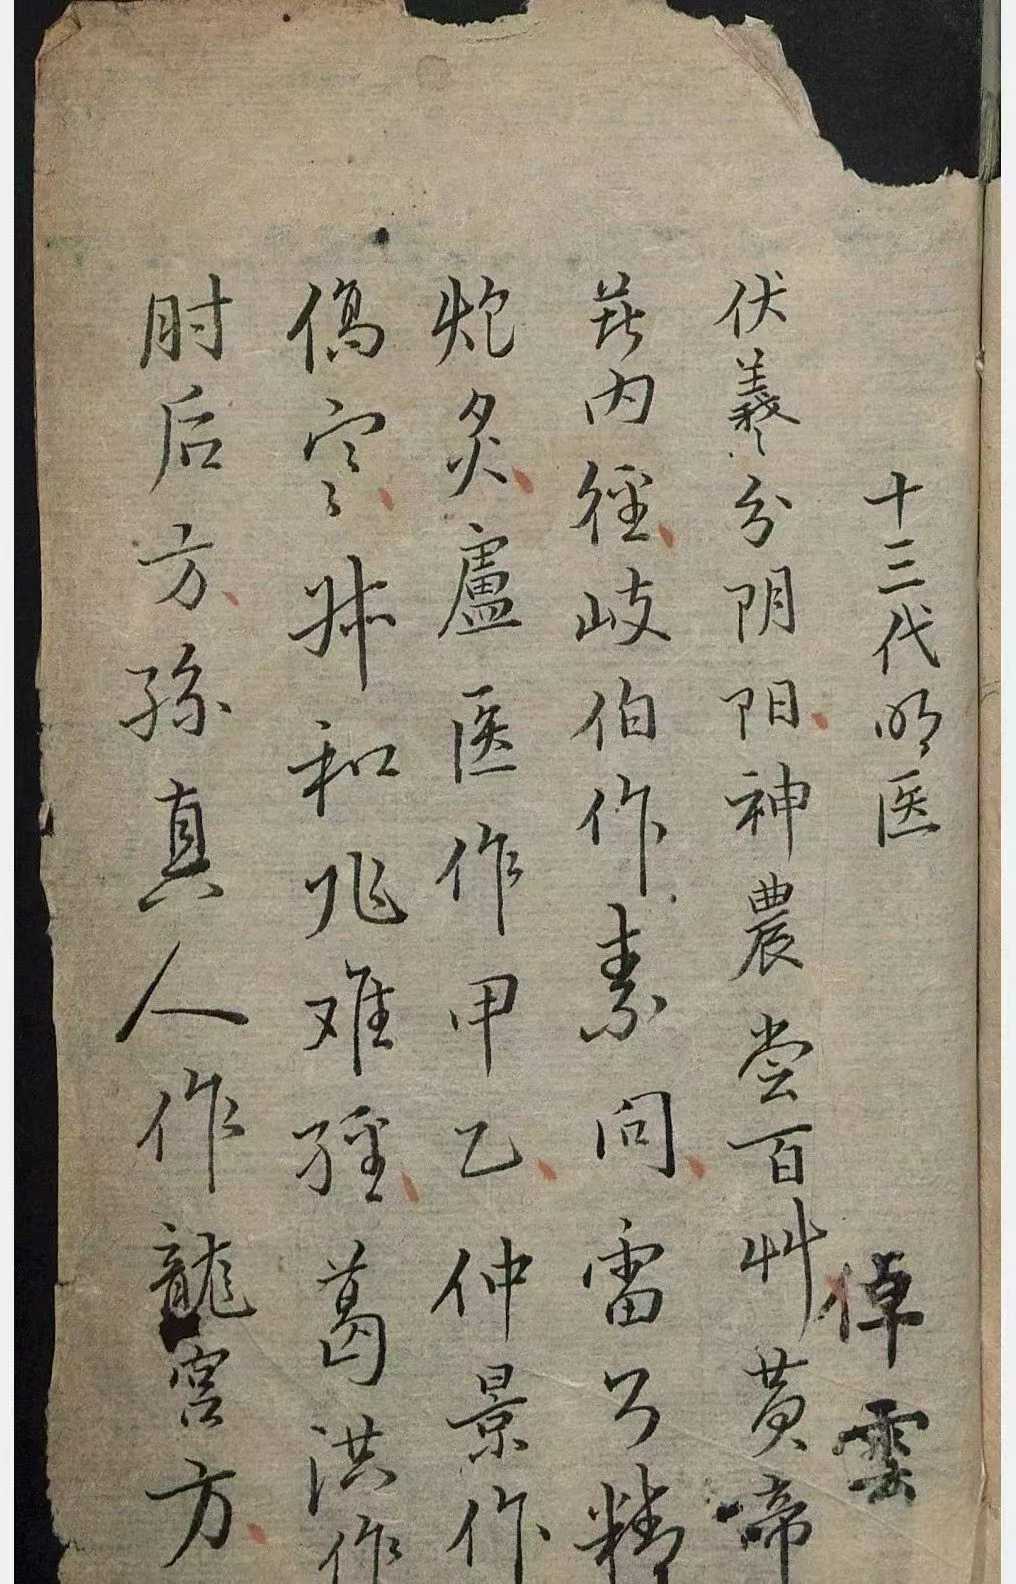 十三代明医
倬雲
伏羲分阴阳神農尝百艸黄啼
甚内經岐伯作素问雷公精
炮炙盧医作甲乙仲景作
傷寒叔和兆难經葛洪作
肘后方孫真人作龍宫方